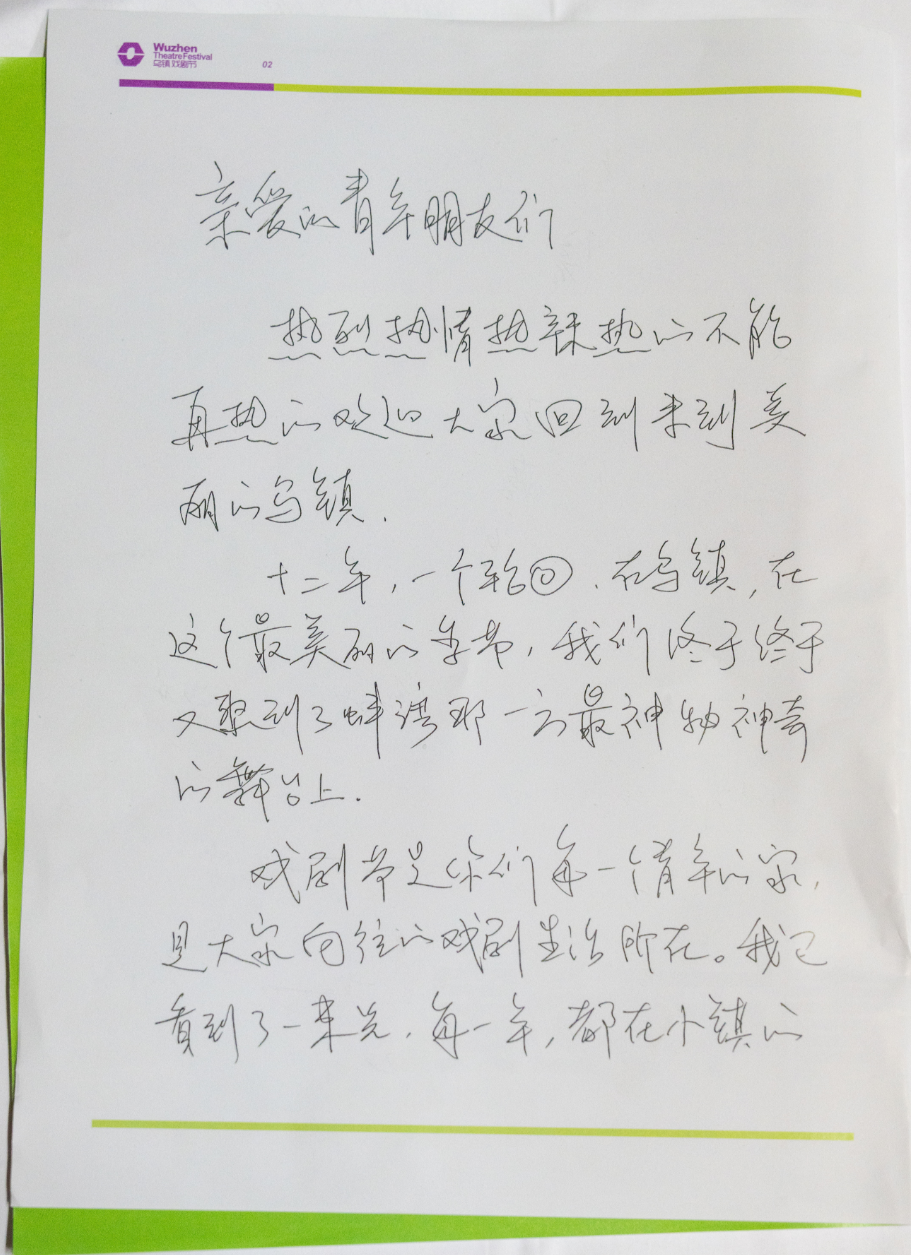 Wuzhen
Theatre Festival
乌镇戏剧节
02
亲爱的青年朋友们
热烈热情热辣热的不能
再热的欢迎大家回到来到美
丽的乌镇.
十二年,一个轮回.在乌镇,在
这个最美丽的季节,我们终于终于
又聚到了蚌湾那一方最神妙神奇
的舞台上.
戏剧节是你们每一个青年的家,
是大家向往的戏剧生活所在。我已
看到了一束光.每一年,都在小镇的